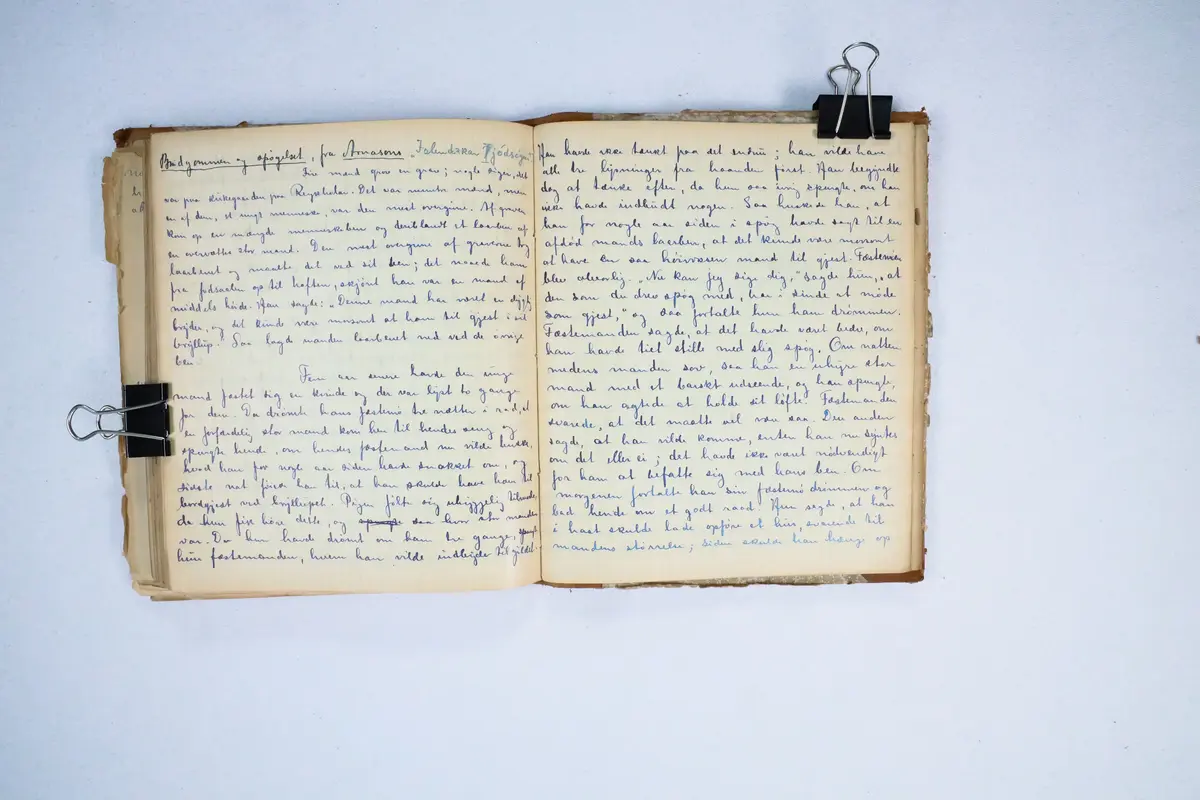 Brudgommen og spøgelset, fra Arnasons „Islendzkar Þjódsögur"
Fire mænd grov en grav; nogle siger, det
var paa kirkegaarden paa Reykholar. Det var muntre mænd, men
en af dem, et ungt menneske, var den mest overgivne. Af graven
kom op en mængde menneskeben og deriblandt et laarben af
en overvættes stor mand. Den mest overgivne af graverne tog
laarbenet og maalte det ved sit ben; det naaede ham
fra fodsaalen op til hoften, skjönt han var en mand af
middels höide. Han sagde: „Denne mand har været en dygtig
bryder, og det kunde være morsomt at ham til gjest i sit
bryllup." Saa lagde manden laarbenet ned ved de övrige
ben.
Fem aar senere havde den unge
mand fæstet sig en kvinde og der var lyst to gange
for dem. Da drömte hans fæstemö tre nætter i rad, at
en forfærdelig stor mand kom hen til hendes seng og
spurgte hende, om hendes fæstemand nu vilde huske,
hvad han for nogle aar siden havde snakket om, og
sidste nat föiede han til, at han skulde have ham til
bordgjest ved bryllupet. Pigen fölte sig uhyggelig tilmode,
da hun fik höre dette, og saa hvor stor manden
var. Da hun havde drömt om ham tre gange, spurgte
hun fæstemanden, hvem han vilde indbyde til gildet.
Han havde ikke tænkt paa det endnu; han vilde have
alle tre lysninger fra haanden först. Han begyndte
dog at tænke efter, da hun saa ivrig spurgte, om han
ikke havde indbudt nogen. Saa huskede han, at
han for nogle aar siden i spög havde sagt til en
afdöd mands laarben, at det kunde være morsomt
at have en saa höivoxen mand til gjest. Fæstemöen
blev alvorlig. „Nu kan jeg sige dig," sagde hun, „at
den som du drev spög med, har i sinde at möde
som gjest," og saa fortalte hun ham drömmen.
Fæstemanden sagde, at det havde været bedre, om
han havde tiet stille med slig spög. Om natten
medens manden sov, saa han en uhyre stor
mand med et barskt udseende, og han spurgte,
om han agtede at holde sit löfte. Fæstemanden
svarede, at det maatte vel være saa. Den anden
sagde, at han vilde komme, enten han nu syntes
om det eller ei; det havde ikke været nödvendigt
for ham at befatte sig med hans ben. Om
morgenen fortalte han sin fæstemö drömmen og
bad hende om et godt raad. Hun sagde, at han
i hast skulde lade opföre et hus, svarende til
mandens störrelse; siden skulde han hænge op